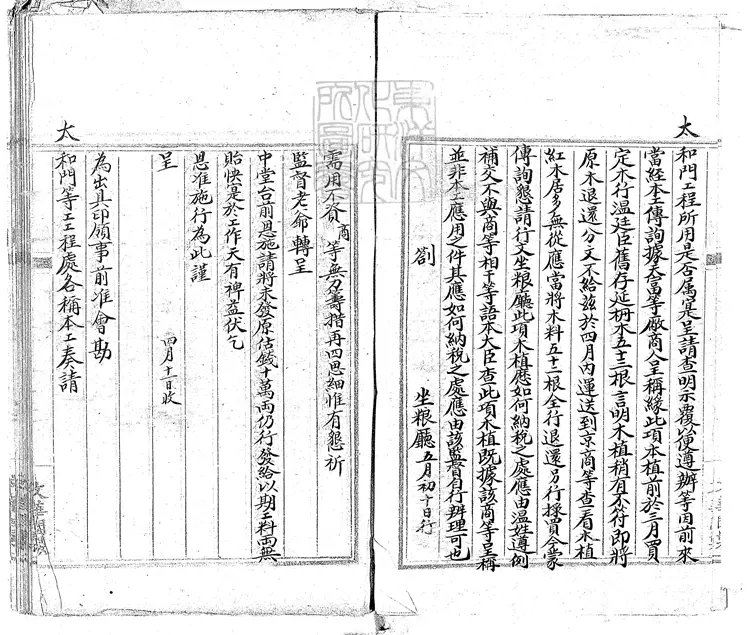 太
和門工程所用是否屬寔呈請查明示覆以便遵辦等因前來
當經本工傳詢據天富等廠商人呈稱緣此項木植前於三月買
定木行溫廷臣舊存延柵木五十三根言明木植稍有不符即將
原木退還分文不給茲於四月內運送到京商等查看木植
紅木居多無從應當將木料五十二根全行退還另行採買今蒙
傳詢懇請行文坐糧廳此項木植應如何納稅之處應由溫姓遵例
補交不與商等相干等語本大臣查此項木植既據該商等呈稱
並非本工應用之件其應如何納稅之處應由該監督自行辦理可也
劄
坐糧廳 五月初十日行
需用不貲商等無力籌措再四思細惟有懇祈
監督老爺轉呈
中堂台前恩施請將未發原估錢十萬兩仍行發給以期工料兩無
貽悞寔於工作大有裨益伏乞
恩准施行為此謹
呈
四月十一日收
為出具印領事前准會勘
太
和門等工工程處各稱本工奏請